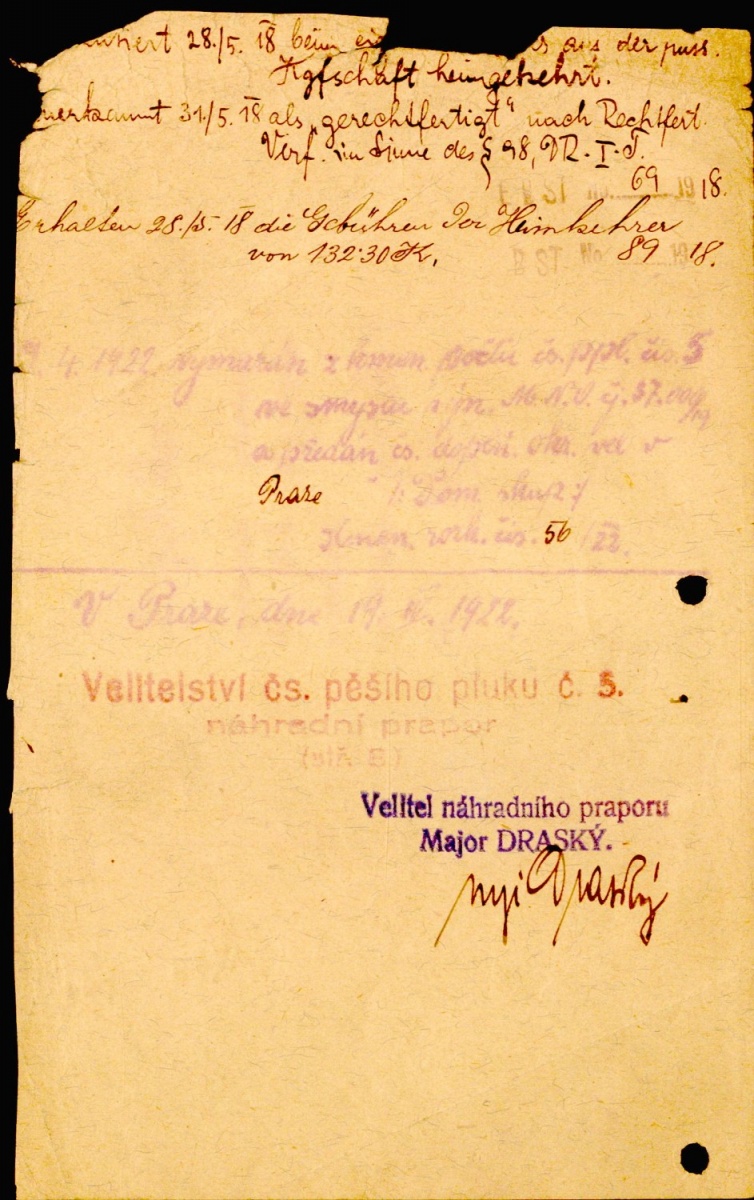 28./5. 18 beim aus der russ.
Kgfschaft heimgekehrt.
31./5. 18 als „gerechtfertigt“ nach Rechtfert.
Verf. im Sinne des § 98, DR. I. T.
69 18.
Erhalten 28./5. 18 die Gebühren der Heimkehrer
von 132·30 K, 89 18.
4. 1922 z kmen. počtu čs. p. pl. čís. 5
ve smyslu výn. M. N. O. č. 57.000/19
a předán čs. dopl. okr. vel. v
Praze
Kmen. rozk. čís. 56 /22.
V Praze, dne 19. IV. 1922.
Velitelství čs. pěšího pluku č. 5.
náhradní prapor
Velitel náhradního praporu
Major DRASKÝ.
mjr Draský